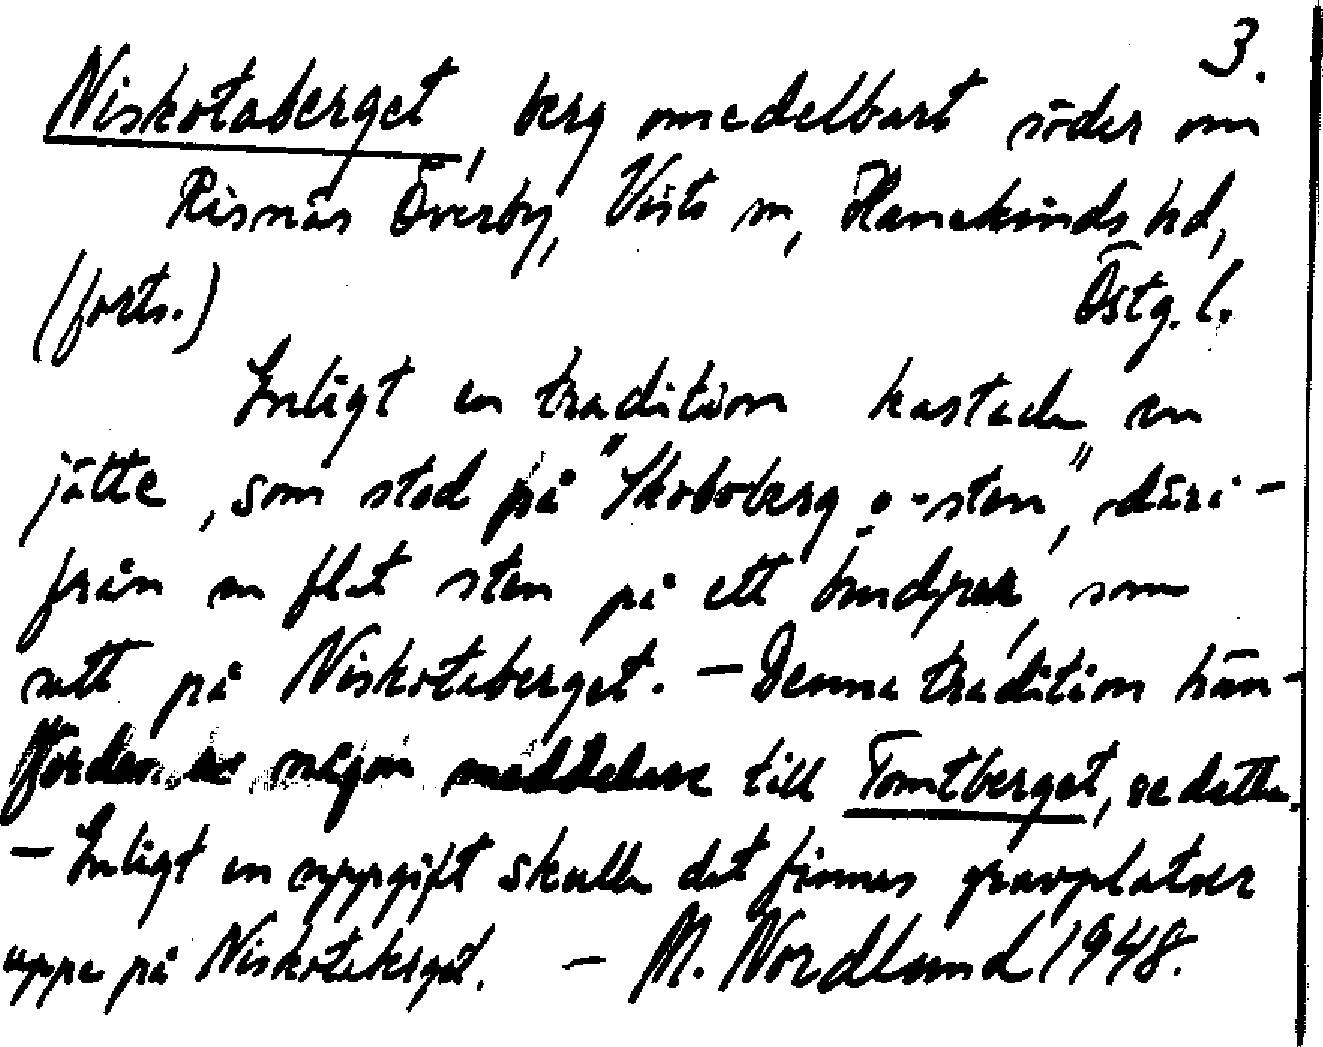 3.
Niskotaberget, berg omedelbart söder om
Risnäs Överby, Vists sn, Hanekinds hd,
(forts.) Östg. l.
Enligt en tradition kastade en
jätte, som stod på "Skoboberg a -sten", däri-
från en flat sten på ett brudpar, som
satt på Niskotaberget. - Denna tradition hän-
fördes av någon meddelare till Tomtberget, se detta.
- Enligt en uppgift skulle det finnas gravplatser
uppe på Niskotaberget. - M. Nordlund 1948.